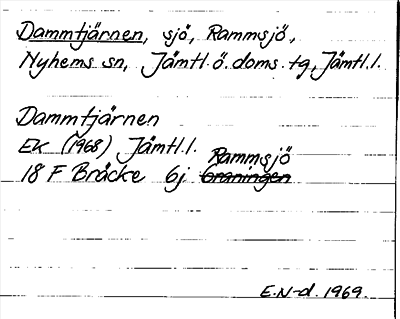 Dammtjärnen, sjö, Rammsjö,
Nyhems sn, Jämtl. ö. doms. tg, Jämtl. l.
Dammtjärnen
EK (1968) Jämtl. l.
Rammsjö
18 F Bräcke 6j Graningen
E.N-d. 1969.